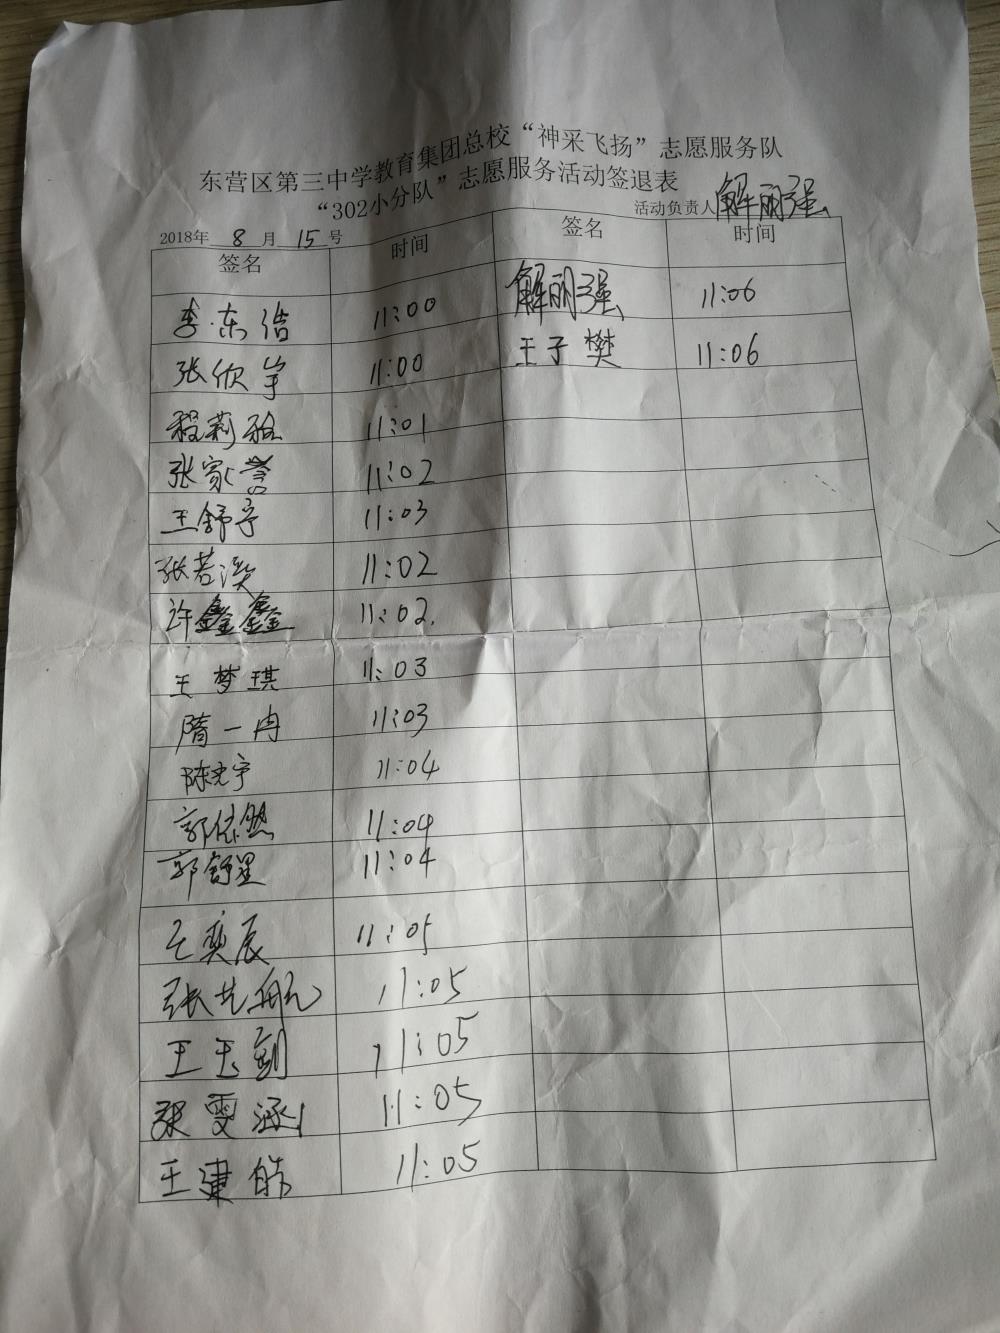 东营区第三中学教育集团总校“神采飞扬”志愿服务队
“302小分队”志愿服务活动签退表
2018年 8 月 15 号 活动负责人 解丽强
签名 时间 签名 时间
李东浩 11:00 解丽强 11:06
张欣宇 11:00 王子樊 11:06
程莉雅 11:01
张家誉 11:02
王舒宁 11:03
张若溪 11:02
许鑫鑫 11:02.
王梦琪 11:03
隋一冉 11:03
陈光宇 11:04
郭依然 11:04
郭舒星 11:04
王奕辰 11:05
张艺航 11:05
王玉剑 11:05
张雯涵 11:05
王建皓 11:05